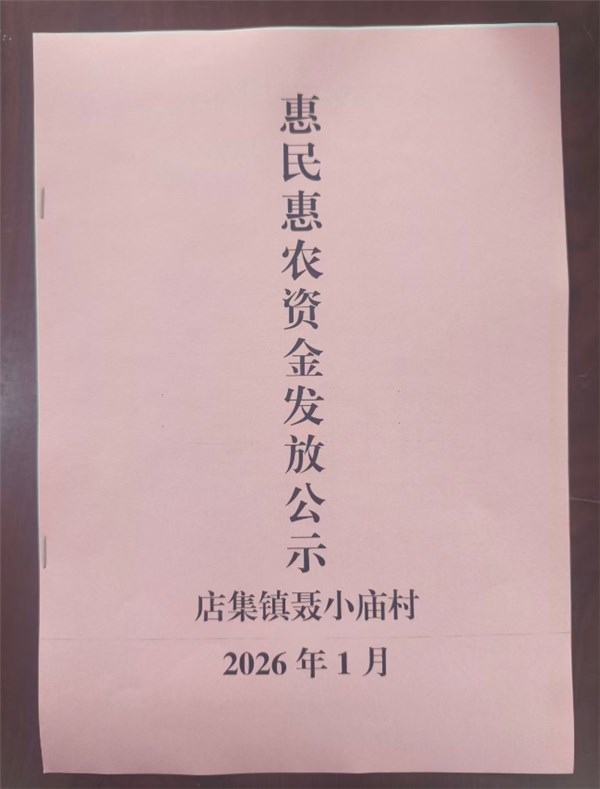 惠民惠农资金发放公示
店集镇聂小庙村
2026年1月